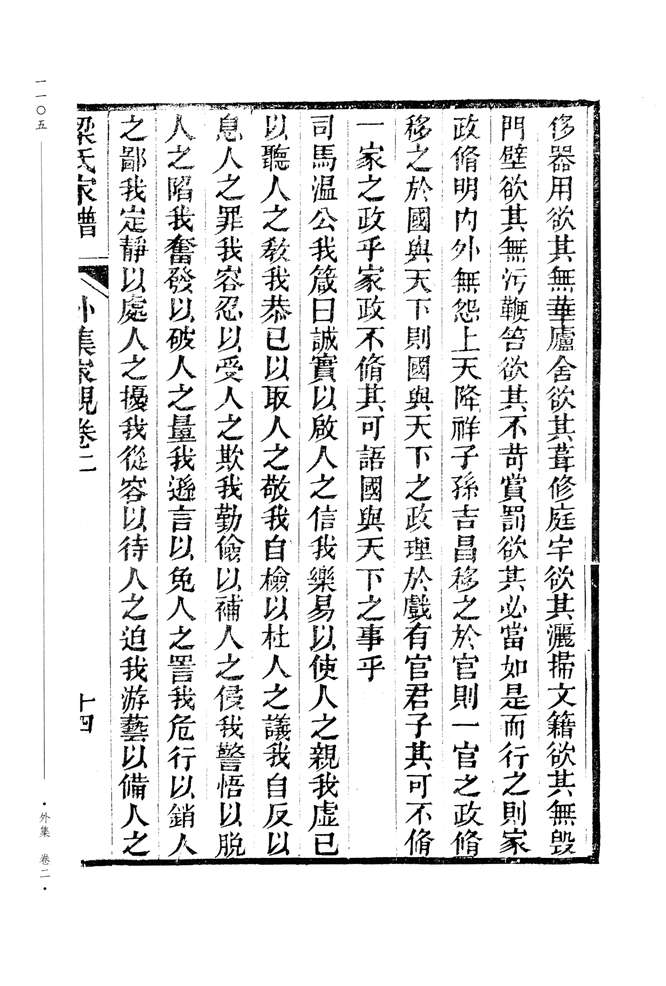 侈器用欲其無華廬舍欲其葺修庭宇欲其灑掃文籍欲其無毀
門壁欲其無污鞭笞欲其不苛賞罰欲其必當如是而行之則家
政脩明內外無怨上天降祥子孫吉昌移之於官則一官之政脩
移之於國與天下則國與天下之政理於戲有官君子其可不脩
一家之政乎家政不脩其可語國與天下之事乎
司馬温公我箴曰誠實以啟人之信我樂易以使人之親我虛已
以聽人之教我恭已以取人之敬我自檢以杜人之議我自反以
息人之罪我容忍以受人之欺我勤儉以補人之侵我警悟以脫
人之陷我奮發以破人之量我遜言以免人之詈我危行以銷人
之鄙我定靜以處人之擾我從容以待人之迫我游藝以備人之
梁氏家譜 外集家規卷二 十四
一一〇五
•外集 卷二•